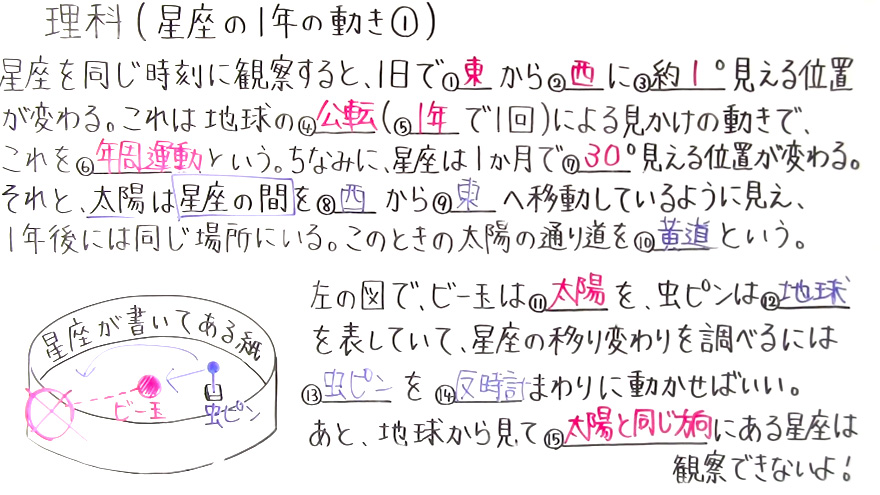 理科(星座の1年の動き①)
星座を同じ時刻に観察すると、1日で①東から②西に③約1°見える位置
が変わる。これは地球の④公転(⑤1年で1回)による見かけの動きで、
これを⑥年周運動という。ちなみに、星座は1か月で⑦30°見える位置が変わる。
それと、太陽は星座の間を⑧西から⑨東へ移動しているように見え、
1年後には同じ場所にいる。このときの太陽の通り道を⑩黄道という。
左の図で、ビー玉は⑪太陽を、虫ピンは⑫地球
を表していて、星座の移り変わりを調べるには
⑬虫ピンを⑭反時計まわりに動かせばいい。
あと、地球から見て⑮太陽と同じ方向にある星座は
観察できないよ!
星座が書いてある紙
ビー玉
虫ピン